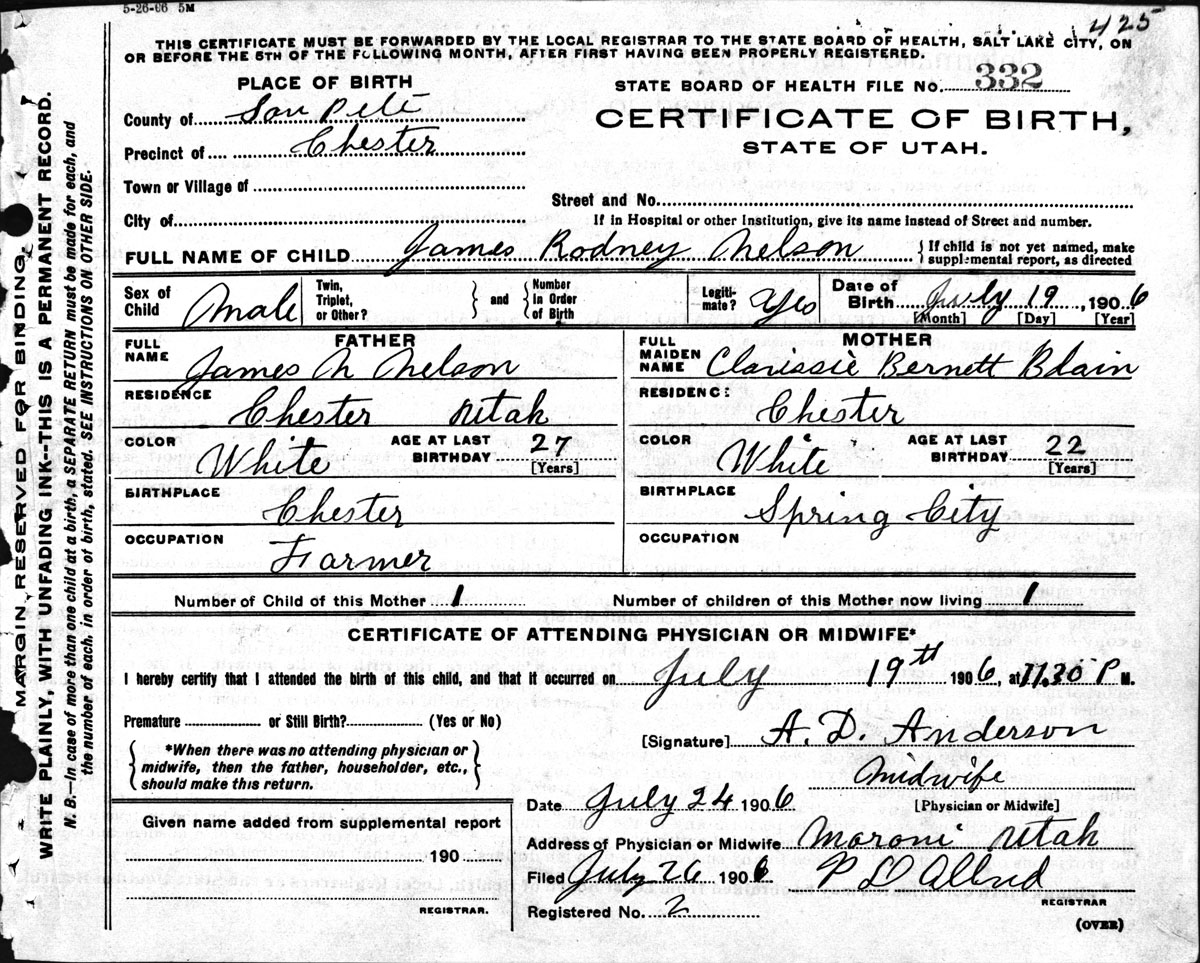 5-26-06 5M
425
THIS CERTIFICATE MUST BE FORWARDED BY THE LOCAL REGISTRAR TO THE STATE BOARD OF HEALTH, SALT LAKE CITY, ON
OR BEFORE THE 5TH OF THE FOLLOWING MONTH, AFTER FIRST HAVING BEEN PROPERLY REGISTERED.
PLACE OF BIRTH
STATE BOARD OF HEALTH FILE No. 332
County of San Pete
CERTIFICATE OF BIRTH,
Precinct of Chester
STATE OF UTAH.
Town or Village of
Street and No.
City of
If in Hospital or other Institution, give its name instead of Street and number.
FULL NAME OF CHILD James Rodney Nelson { If child is not yet named, make
supplemental report, as directed
Sex of Child Male
Twin, Triplet, or Other? } and { Number in Order of Birth
Legiti-mate? Yes
Date of Birth July 19, 1906
[Month] [Day] [Year]
FATHER
MOTHER
FULL NAME James N Nelson
FULL MAIDEN NAME Clarissie Bernett Blain
RESIDENCE Chester Utah
RESIDENCE Chester
COLOR White AGE AT LAST BIRTHDAY 27 [Years]
COLOR White AGE AT LAST BIRTHDAY 22 [Years]
BIRTHPLACE Chester
BIRTHPLACE Spring City
OCCUPATION Farmer
OCCUPATION
Number of Child of this Mother 1
Number of children of this Mother now living 1
CERTIFICATE OF ATTENDING PHYSICIAN OR MIDWIFE*
I hereby certify that I attended the birth of this child, and that it occurred on July 19th 1906, at 11.30 P M.
Premature or Still Birth? (Yes or No)
[Signature] A. D. Anderson
{ *When there was no attending physician or
midwife, then the father, householder, etc.,
should make this return. }
Midwife
[Physician or Midwife]
Date July 24 1906
Given name added from supplemental report
Address of Physician or Midwife Moroni Utah
190
Filed July 26 1906
REGISTRAR.
REGISTRAR
Registered No. 2
(OVER)
MARGIN RESERVED FOR BINDING.
WRITE PLAINLY, WITH UNFADING INK--THIS IS A PERMANENT RECORD.
N. B.—In case of more than one child at a birth, a SEPARATE RETURN must be made for each, and
the number of each, in order of birth, stated. SEE INSTRUCTIONS ON OTHER SIDE.